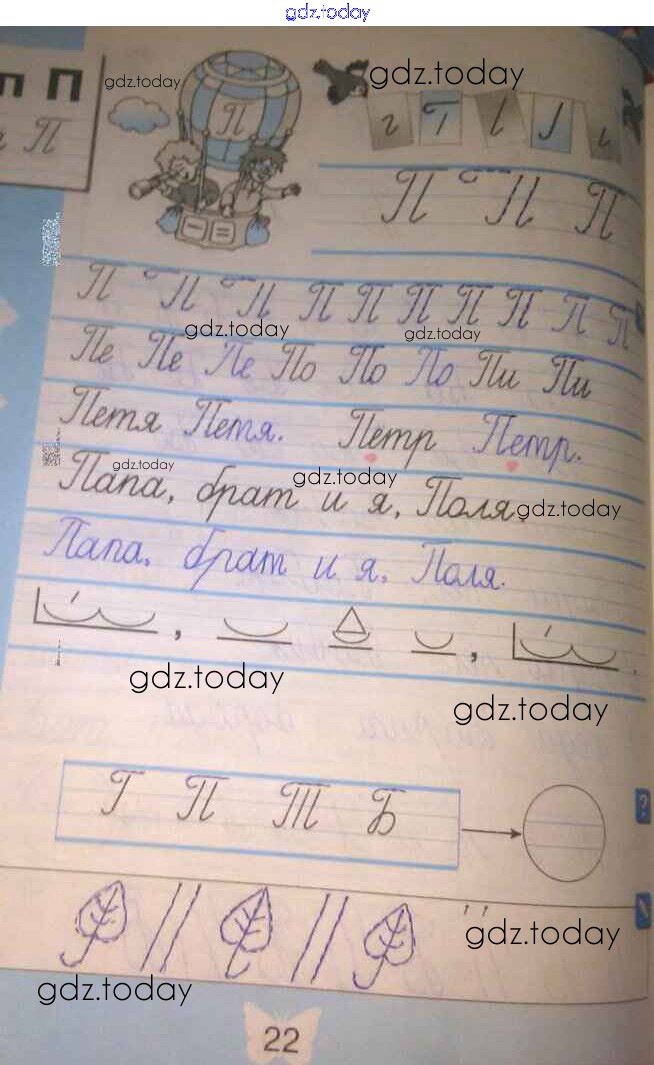 gdz.today
gdz.today gdz.today
п П
П П
г Г
П П П
П П П П П П П П П П
gdz.today gdz.today
Пе Пе Пе По По По Пи Пи
Петя Петя. Петр Петр.
gdz.today gdz.today
Папа, брат и я, Поля.
gdz.today
Папа, брат и я, Поля.
gdz.today
gdz.today
Г П Т Б
?
gdz.today
gdz.today
22